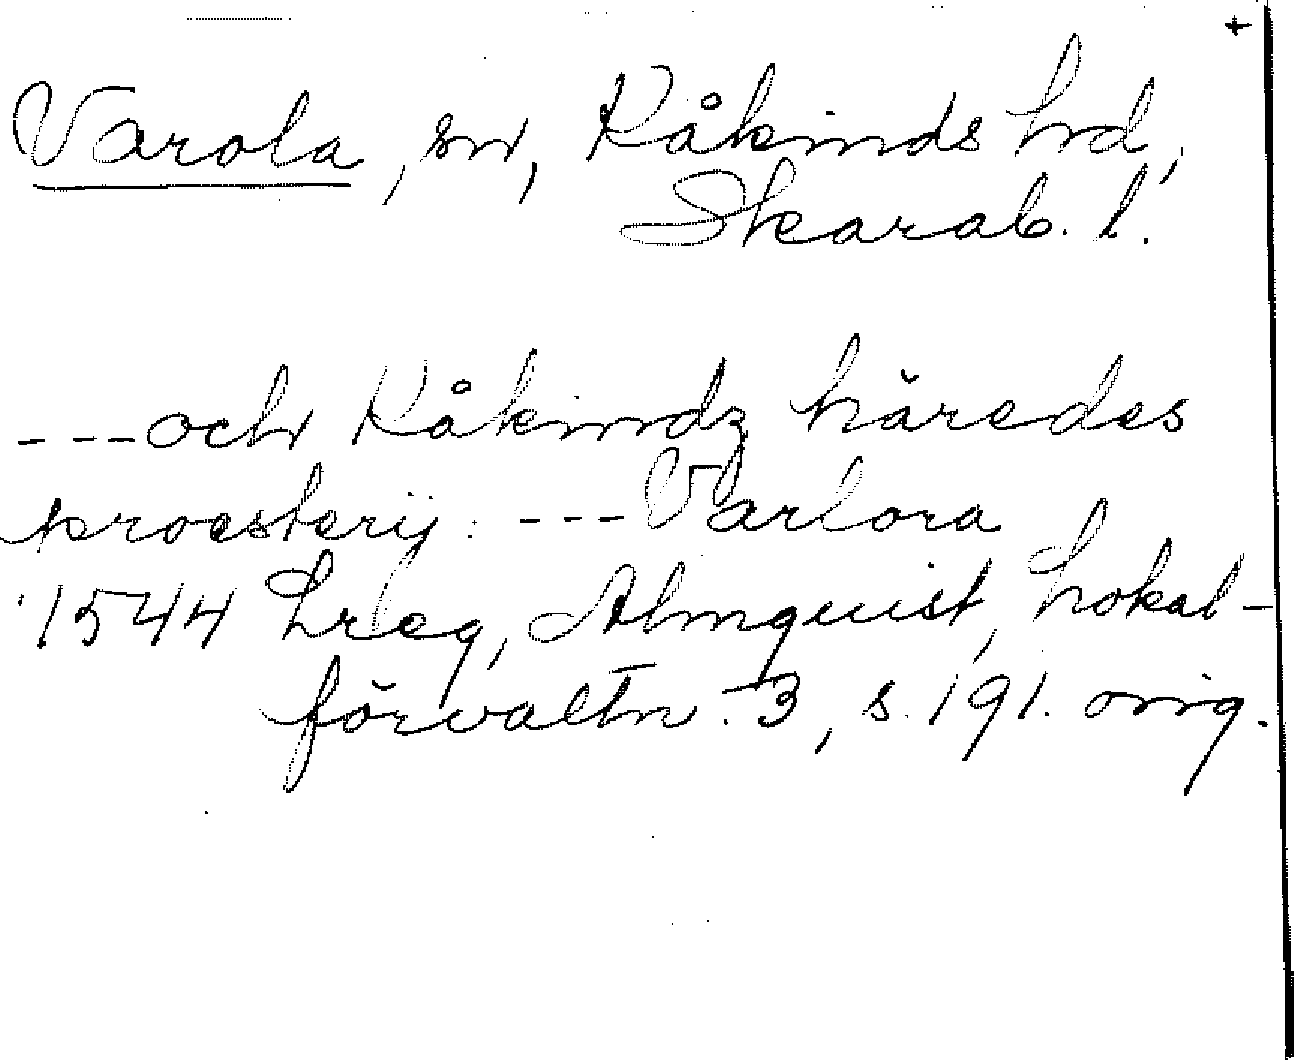 +
Varola, sn, Kåkinds hd,
Skarab. l.
---och Kåkindz häredes
proesterij: ---Varlora
1544 Lreg, Almquist, Lokal-
förvaltn. 3, s. 191. orig.